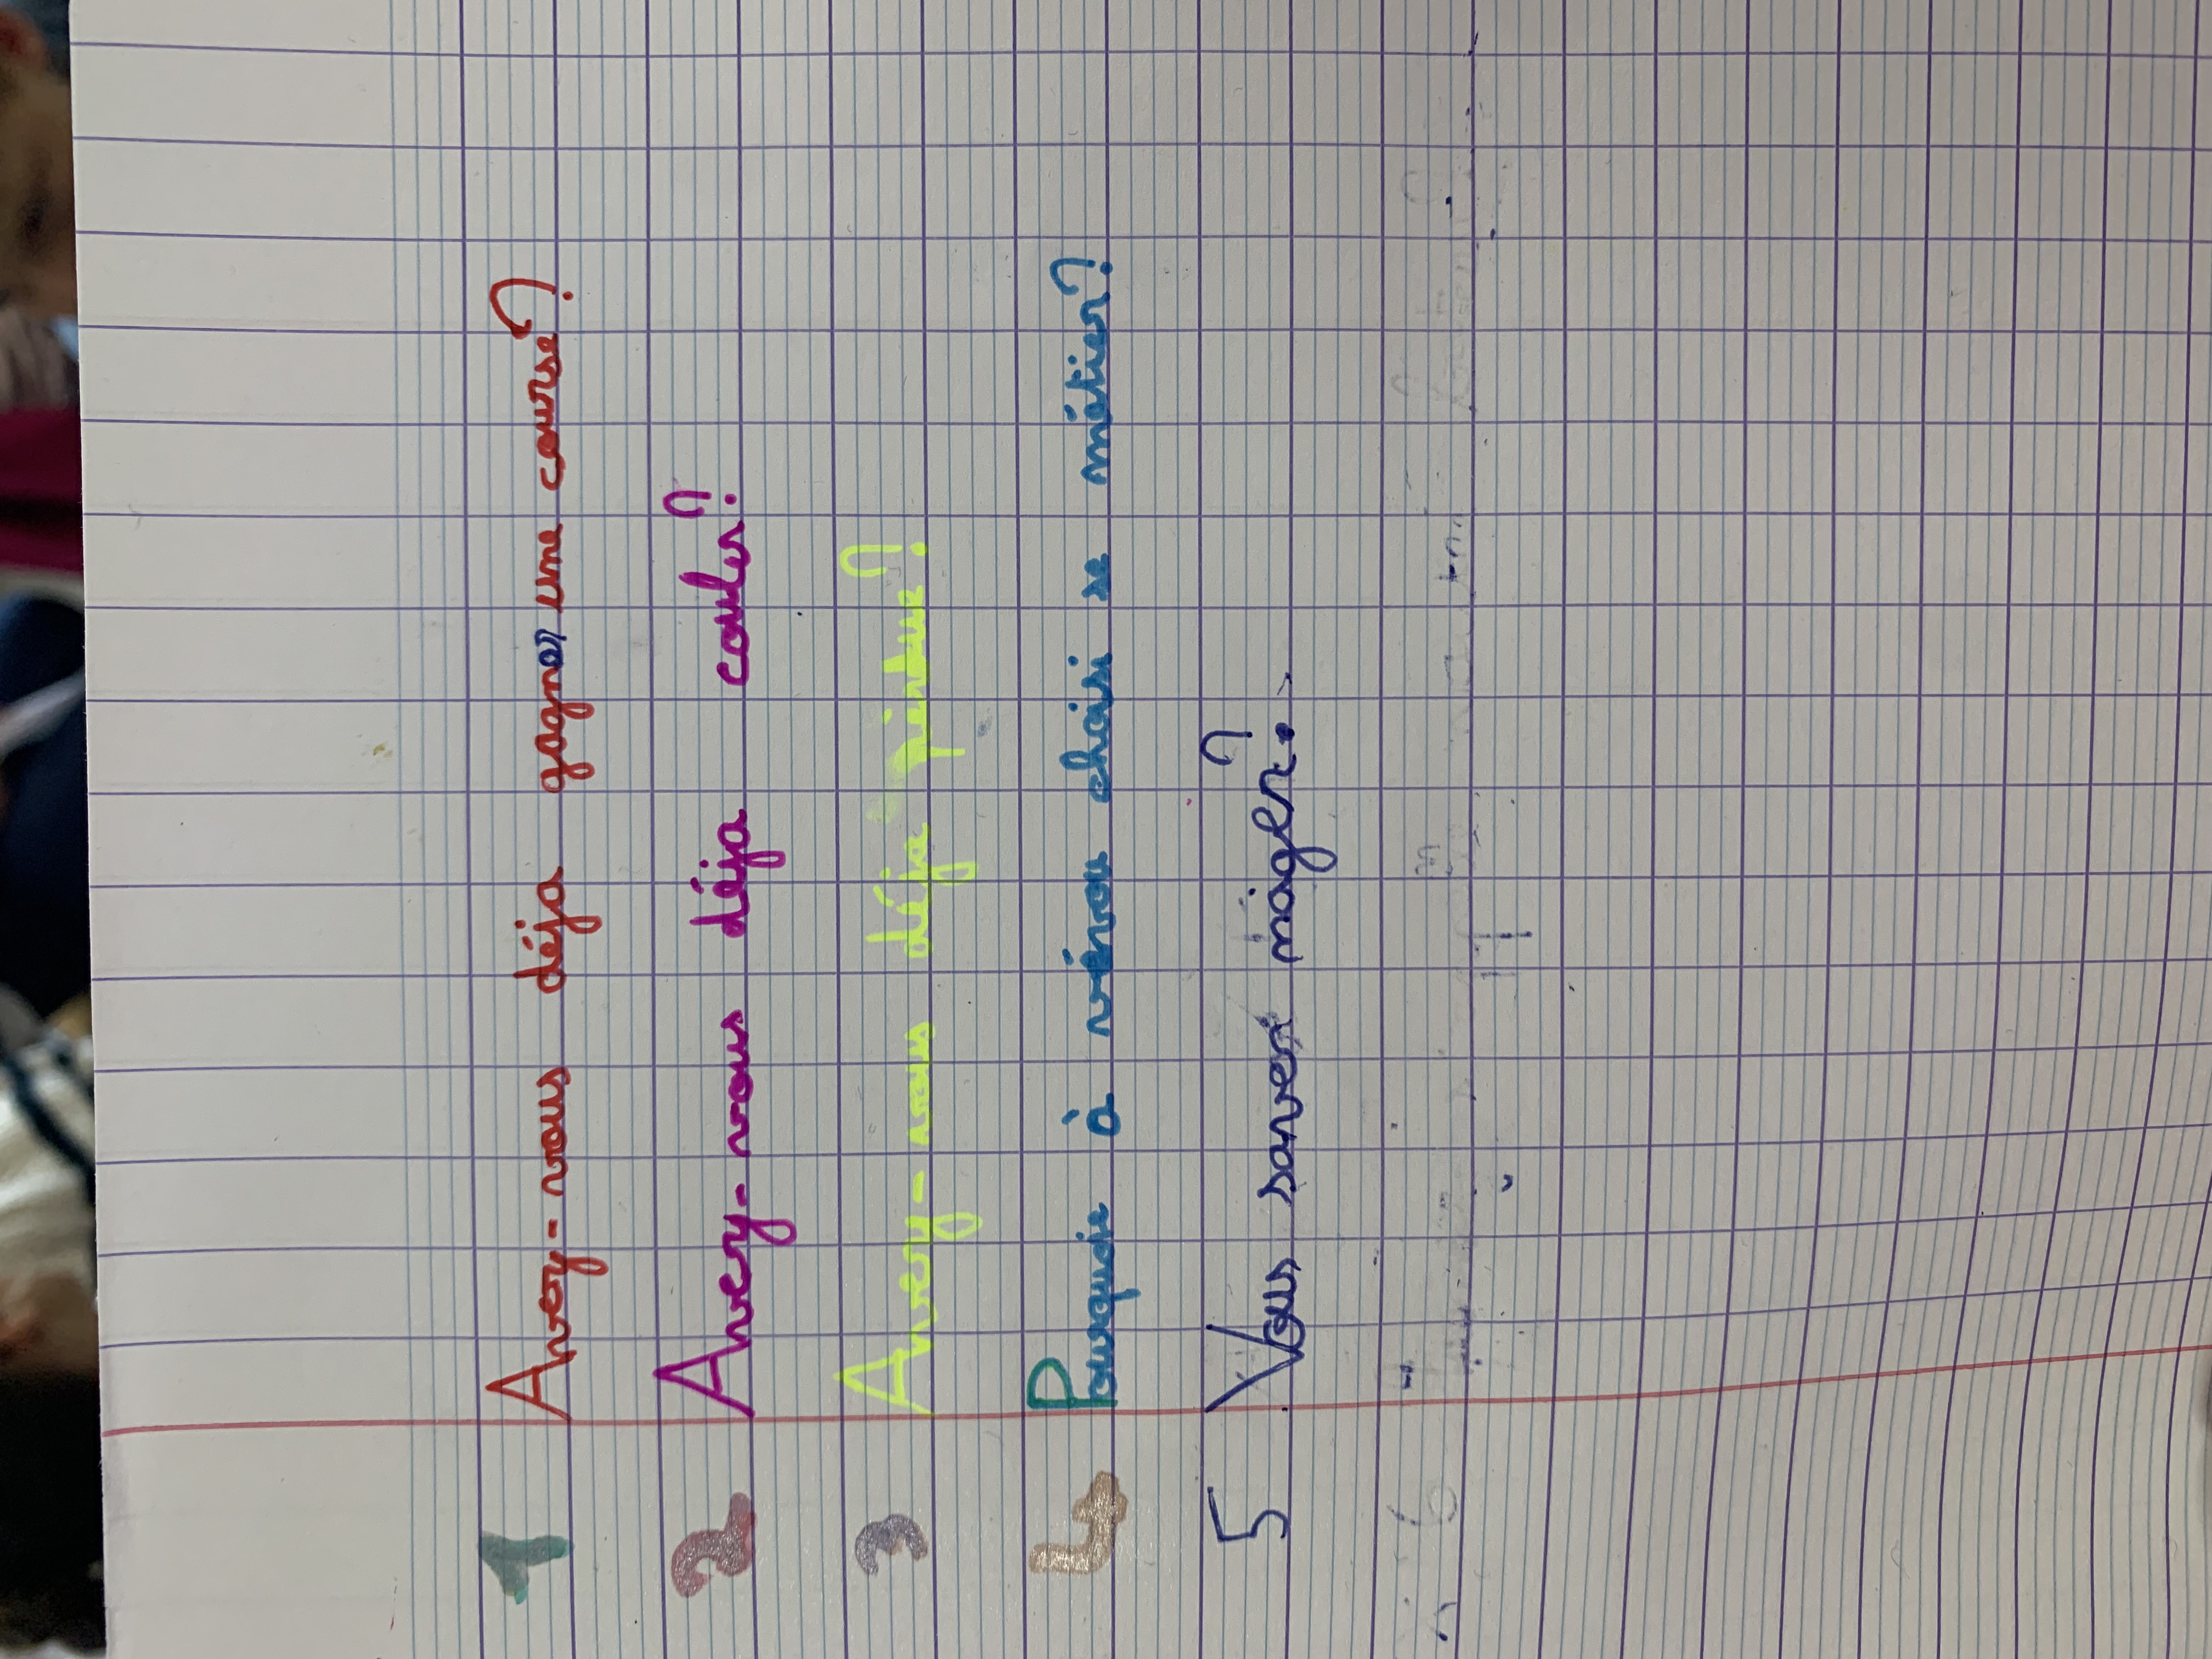 1 Avez-vous déja gagner une course?
2 Avez-vous déja couler?
3 Avez-vous déja pèrdue?
4 Pourquoie à vévou choisi se métier?
5 Vous saver nager?
6